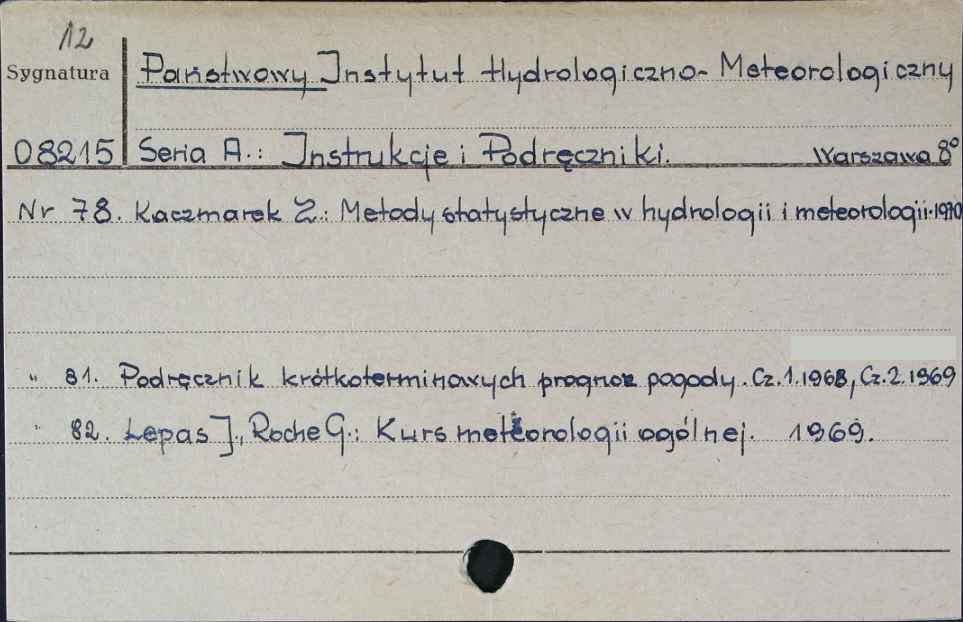 12
Sygnatura
Państwowy Instytut Hydrologiczno-Meteorologiczny
08215 Seria A.: Instrukcje i Podręczniki. Warszawa 8°
Nr 78. Kaczmarek Z.: Metody statystyczne w hydrologii i meteorologii. 1970
" 81. Podręcznik krótkoterminowych prognoz pogody. Cz.1.1968, Cz.2.1969
" 82. Lepas J., Roche G.: Kurs meteorologii ogólnej. 1969.